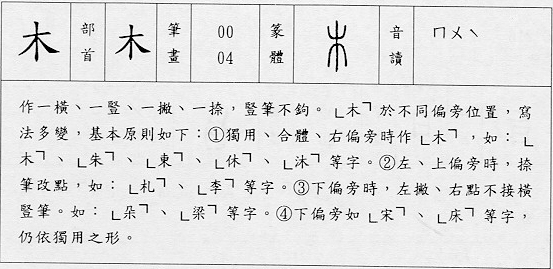 木 部首 木 筆畫 00 04 篆體 木 音讀 ㄇㄨˋ
作一橫、一豎、一撇、一捺，豎筆不鉤。「木」於不同偏旁位置，寫
法多變，基本原則如下：①獨用、合體、右偏旁時作「木」，如：「
木」、「朱」、「東」、「休」、「沐」等字。②左、上偏旁時，捺
筆改點，如：「札」、「李」等字。③下偏旁時，左撇、右點不接橫
豎筆。如：「朵」、「梁」等字。④下偏旁如「宋」、「床」等字，
仍依獨用之形。